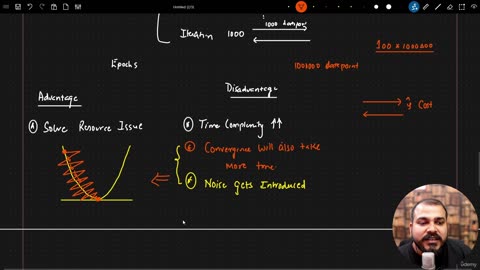 Untitled
1000 datapoint
Iteration 1000
100 x 1000000
Epochs
1000000 datapoint
Advantage
Disadvantage
ŷ Cost
Solve Resource Issue
Time Complexity ↑↑
Convergence will also take
more time.
Noise Gets Introduced
Udemy